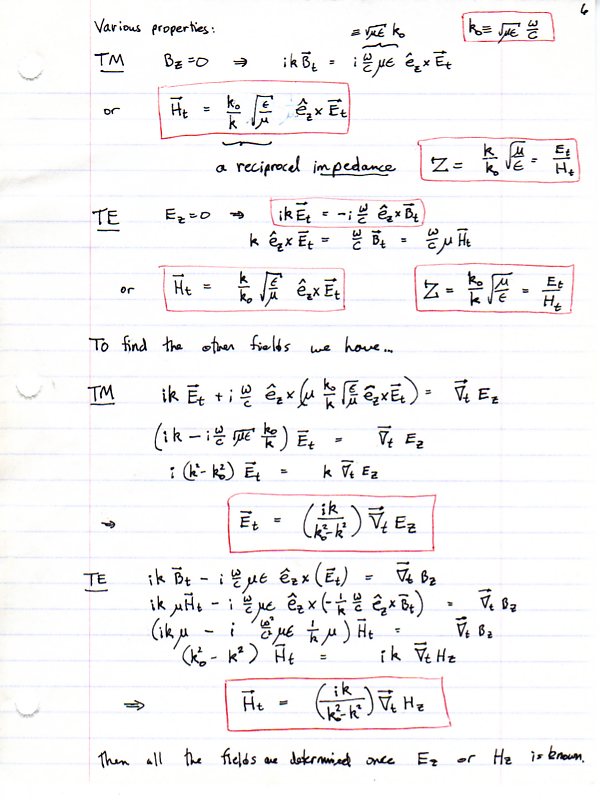 6
Various properties: ≡ √με k₀ k₀ ≡ √με ω/c
TM B_z = 0 ⇒ ik B⃗_t = i ω/c με ê_z × E⃗_t
or H⃗_t = k₀/k √(ε/μ) ê_z × E⃗_t
a reciprocal impedance Z = k/k₀ √(μ/ε) = E_t/H_t
TE E_z = 0 ⇒ ik E⃗_t = -i ω/c ê_z × B⃗_t
k ê_z × E⃗_t = ω/c B⃗_t = ω/c μ H⃗_t
or H⃗_t = k/k₀ √(ε/μ) ê_z × E⃗_t Z = k₀/k √(μ/ε) = E_t/H_t
To find the other fields we have...
TM ik E⃗_t + i ω/c ê_z × (μ k₀/k √(ε/μ) ê_z × E⃗_t) = ∇⃗_t E_z
(ik - i ω/c √με k₀/k) E⃗_t = ∇⃗_t E_z
i (k² - k₀²) E⃗_t = k ∇⃗_t E_z
⇒ E⃗_t = (ik/(k₀² - k²)) ∇⃗_t E_z
TE ik B⃗_t - i ω/c με ê_z × (E⃗_t) = ∇⃗_t B_z
ik μH⃗_t - i ω/c με ê_z × (-1/k ω/c ê_z × B⃗_t) = ∇⃗_t B_z
(ik μ - i ω²/c² με 1/k μ) H⃗_t = ∇⃗_t B_z
(k₀² - k²) H⃗_t = ik ∇⃗_t H_z
⇒ H⃗_t = (ik/(k₀² - k²)) ∇⃗_t H_z
Then all the fields are determined once E_z or H_z is known.